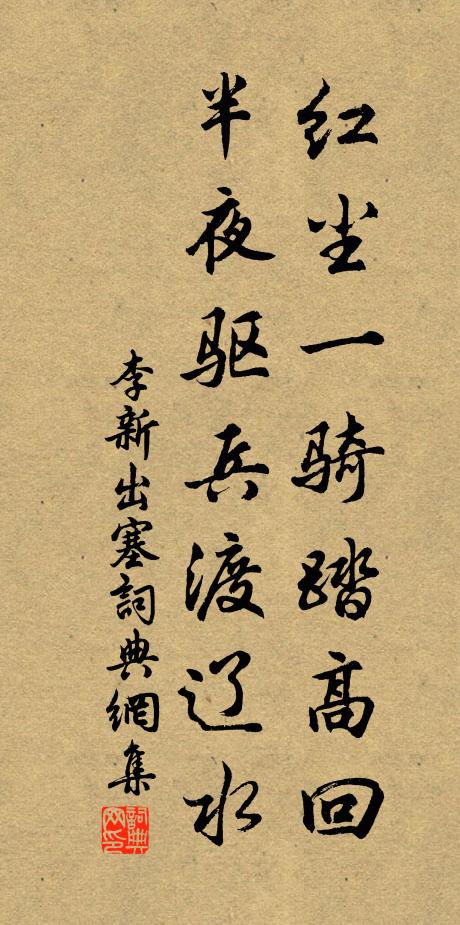 红尘一骑踏高回
半夜驱兵渡辽水
李新出塞詞典網集
詞典网印